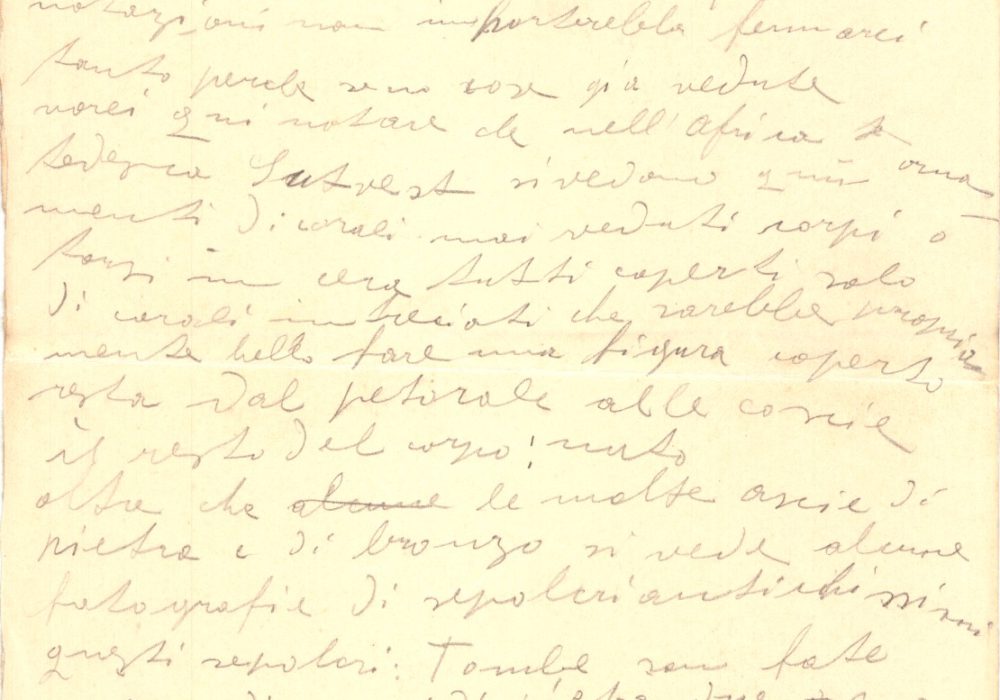 notazioni non importerebbe fermarci
tanto perche sono cose già vedute
vorei qui notare che nell'Africa
tedesca Sutvest si vedono orna
menti di corali mai veduti corpi o
torsi in cera tutti coperti solo
di corali intreciati che sarebbe propria
mente bello fare una figura coperto
resta dal petorale alle coscie
il resto del corpo: nuto
oltre che alcune le molte ascie di
pietra e di bronzo si vede alcune
fotografie di sepolcri antichissimi
questi sepolcri: Tombe son fate